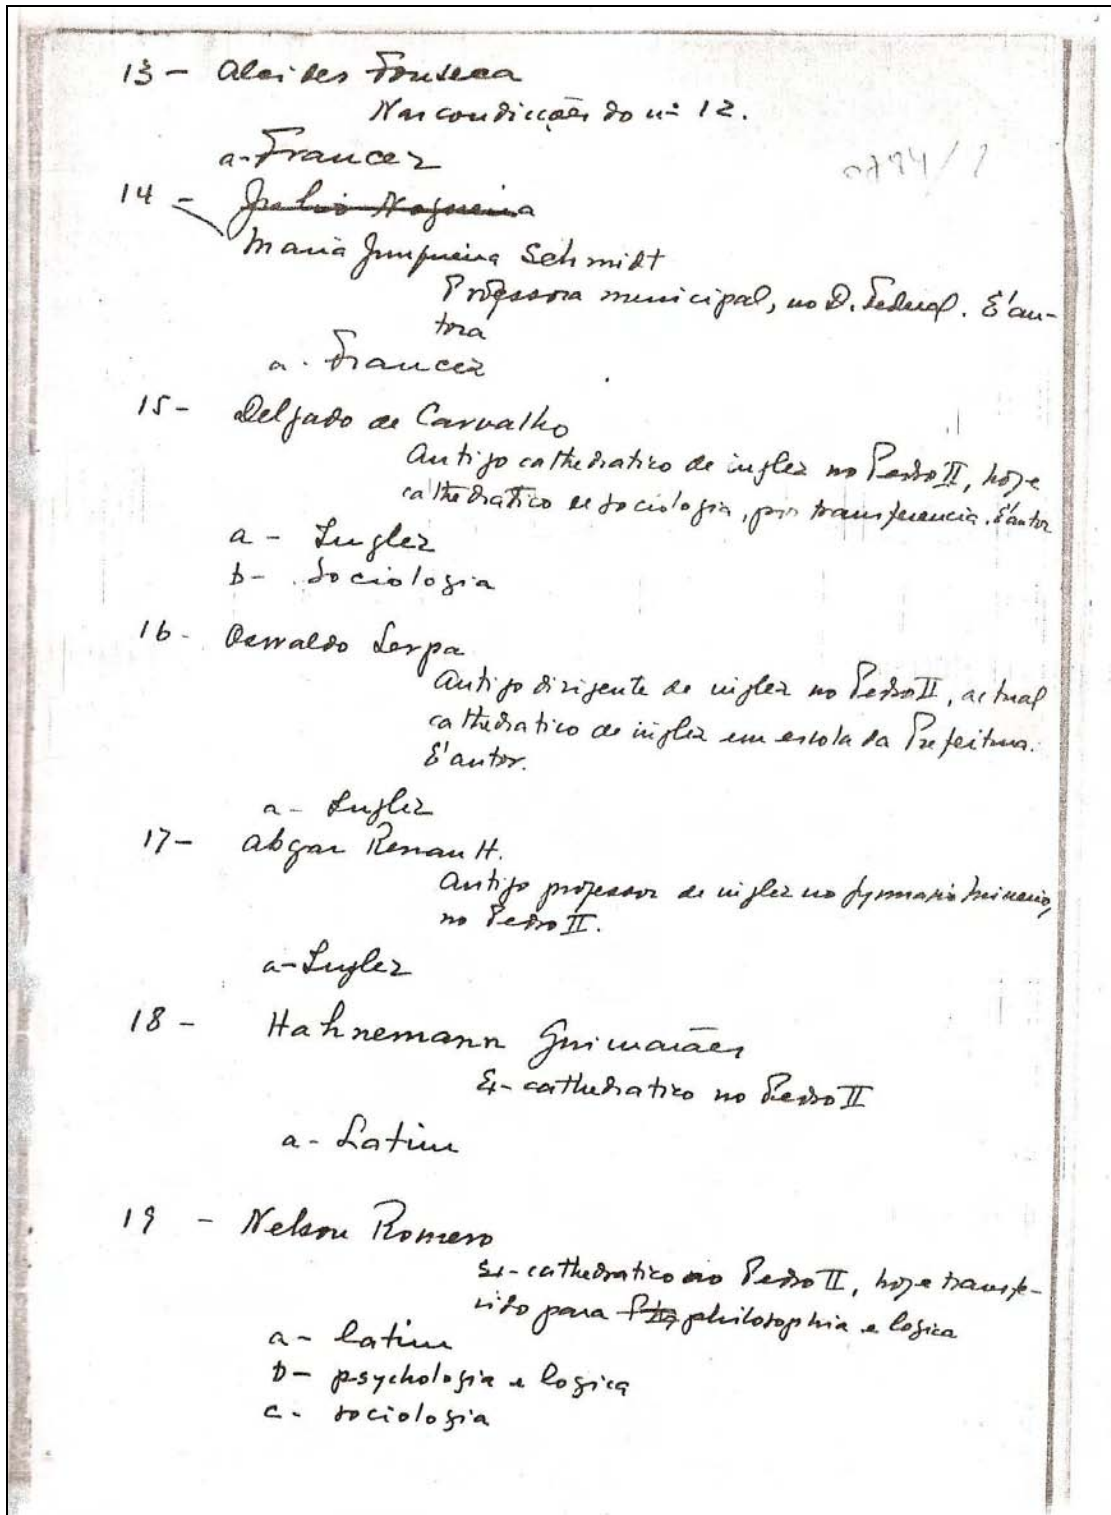 13 - Alcides Fonseca
Nas condicções do nº 12.
a - Francez
0794/2
14 - Julio Nogueira
Maria Junqueira Schmidt
Professora municipal, no D. Federal. E' au-
tora
a - Francez
15 - Delgado de Carvalho
Antigo cathedratico de inglez no Pedro II, hoje
cathedratico de sociologia, por transferencia. E' autor
a - Inglez
b - Sociologia
16 - Oswaldo Serpa
Antigo dirigente de inglez no Pedro II, actual
cathedratico de inglez em escola da Prefeitura.
E' autor.
a - Inglez
17 - Abgar Renault.
Antigo professor de inglez no Gymnasio Mineiro,
no Pedro II.
a - Inglez
18 - Hahnemann Guimarães
Ex-cathedratico no Pedro II
a - Latim
19 - Nelson Romero
Ex-cathedratico no Pedro II, hoje transfe-
rido para philosophia e logica
a - latim
b - psychologia e logica
c - sociologia